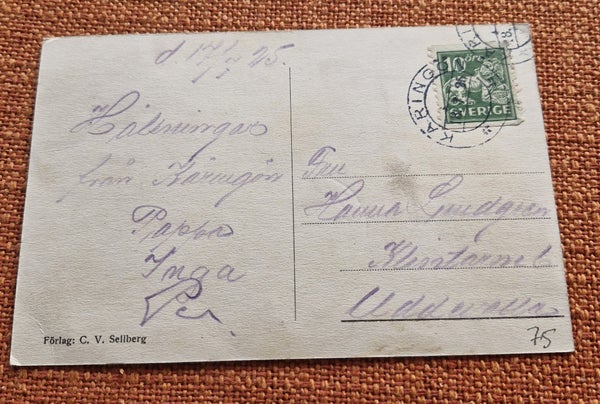 d 17/7 25.
Hälsningar
från Käringön
Pappa
Inga
Per
Förlag: C. V. Sellberg
10 öre
SVERIGE
KÄRINGÖN
Fru
Hanna Lundgren
Uddevalla
75